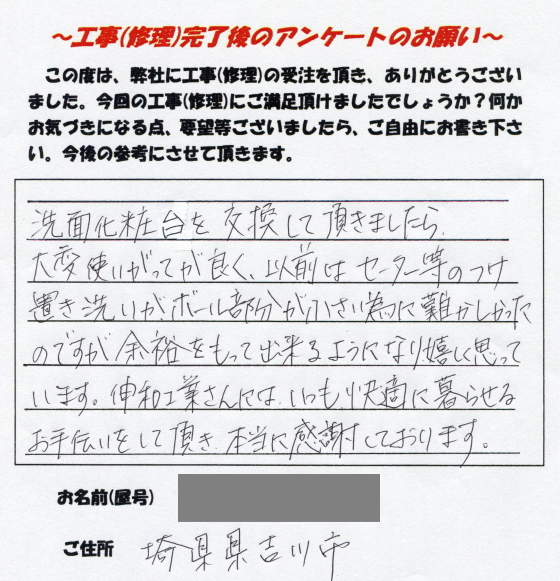 ～工事(修理)完了後のアンケートのお願い～
この度は、弊社に工事(修理)の受注を頂き、ありがとうござい
ました。今回の工事(修理)にご満足頂けましたでしょうか？何か
お気づきになる点、要望等ございましたら、ご自由にお書き下さ
い。今後の参考にさせて頂きます。
洗面化粧台を交換して頂きましたら、
大変使いがってが良く、以前はセーター等のつけ
置き洗いがボール部分が小さい為に難かしかった
のですが余裕をもって出来るようになり嬉しく思って
います。伸和工業さんには、いつも快適に暮らせる
お手伝いをして頂き、本当に感謝しております。
お名前(屋号)
ご住所 埼県県吉川市